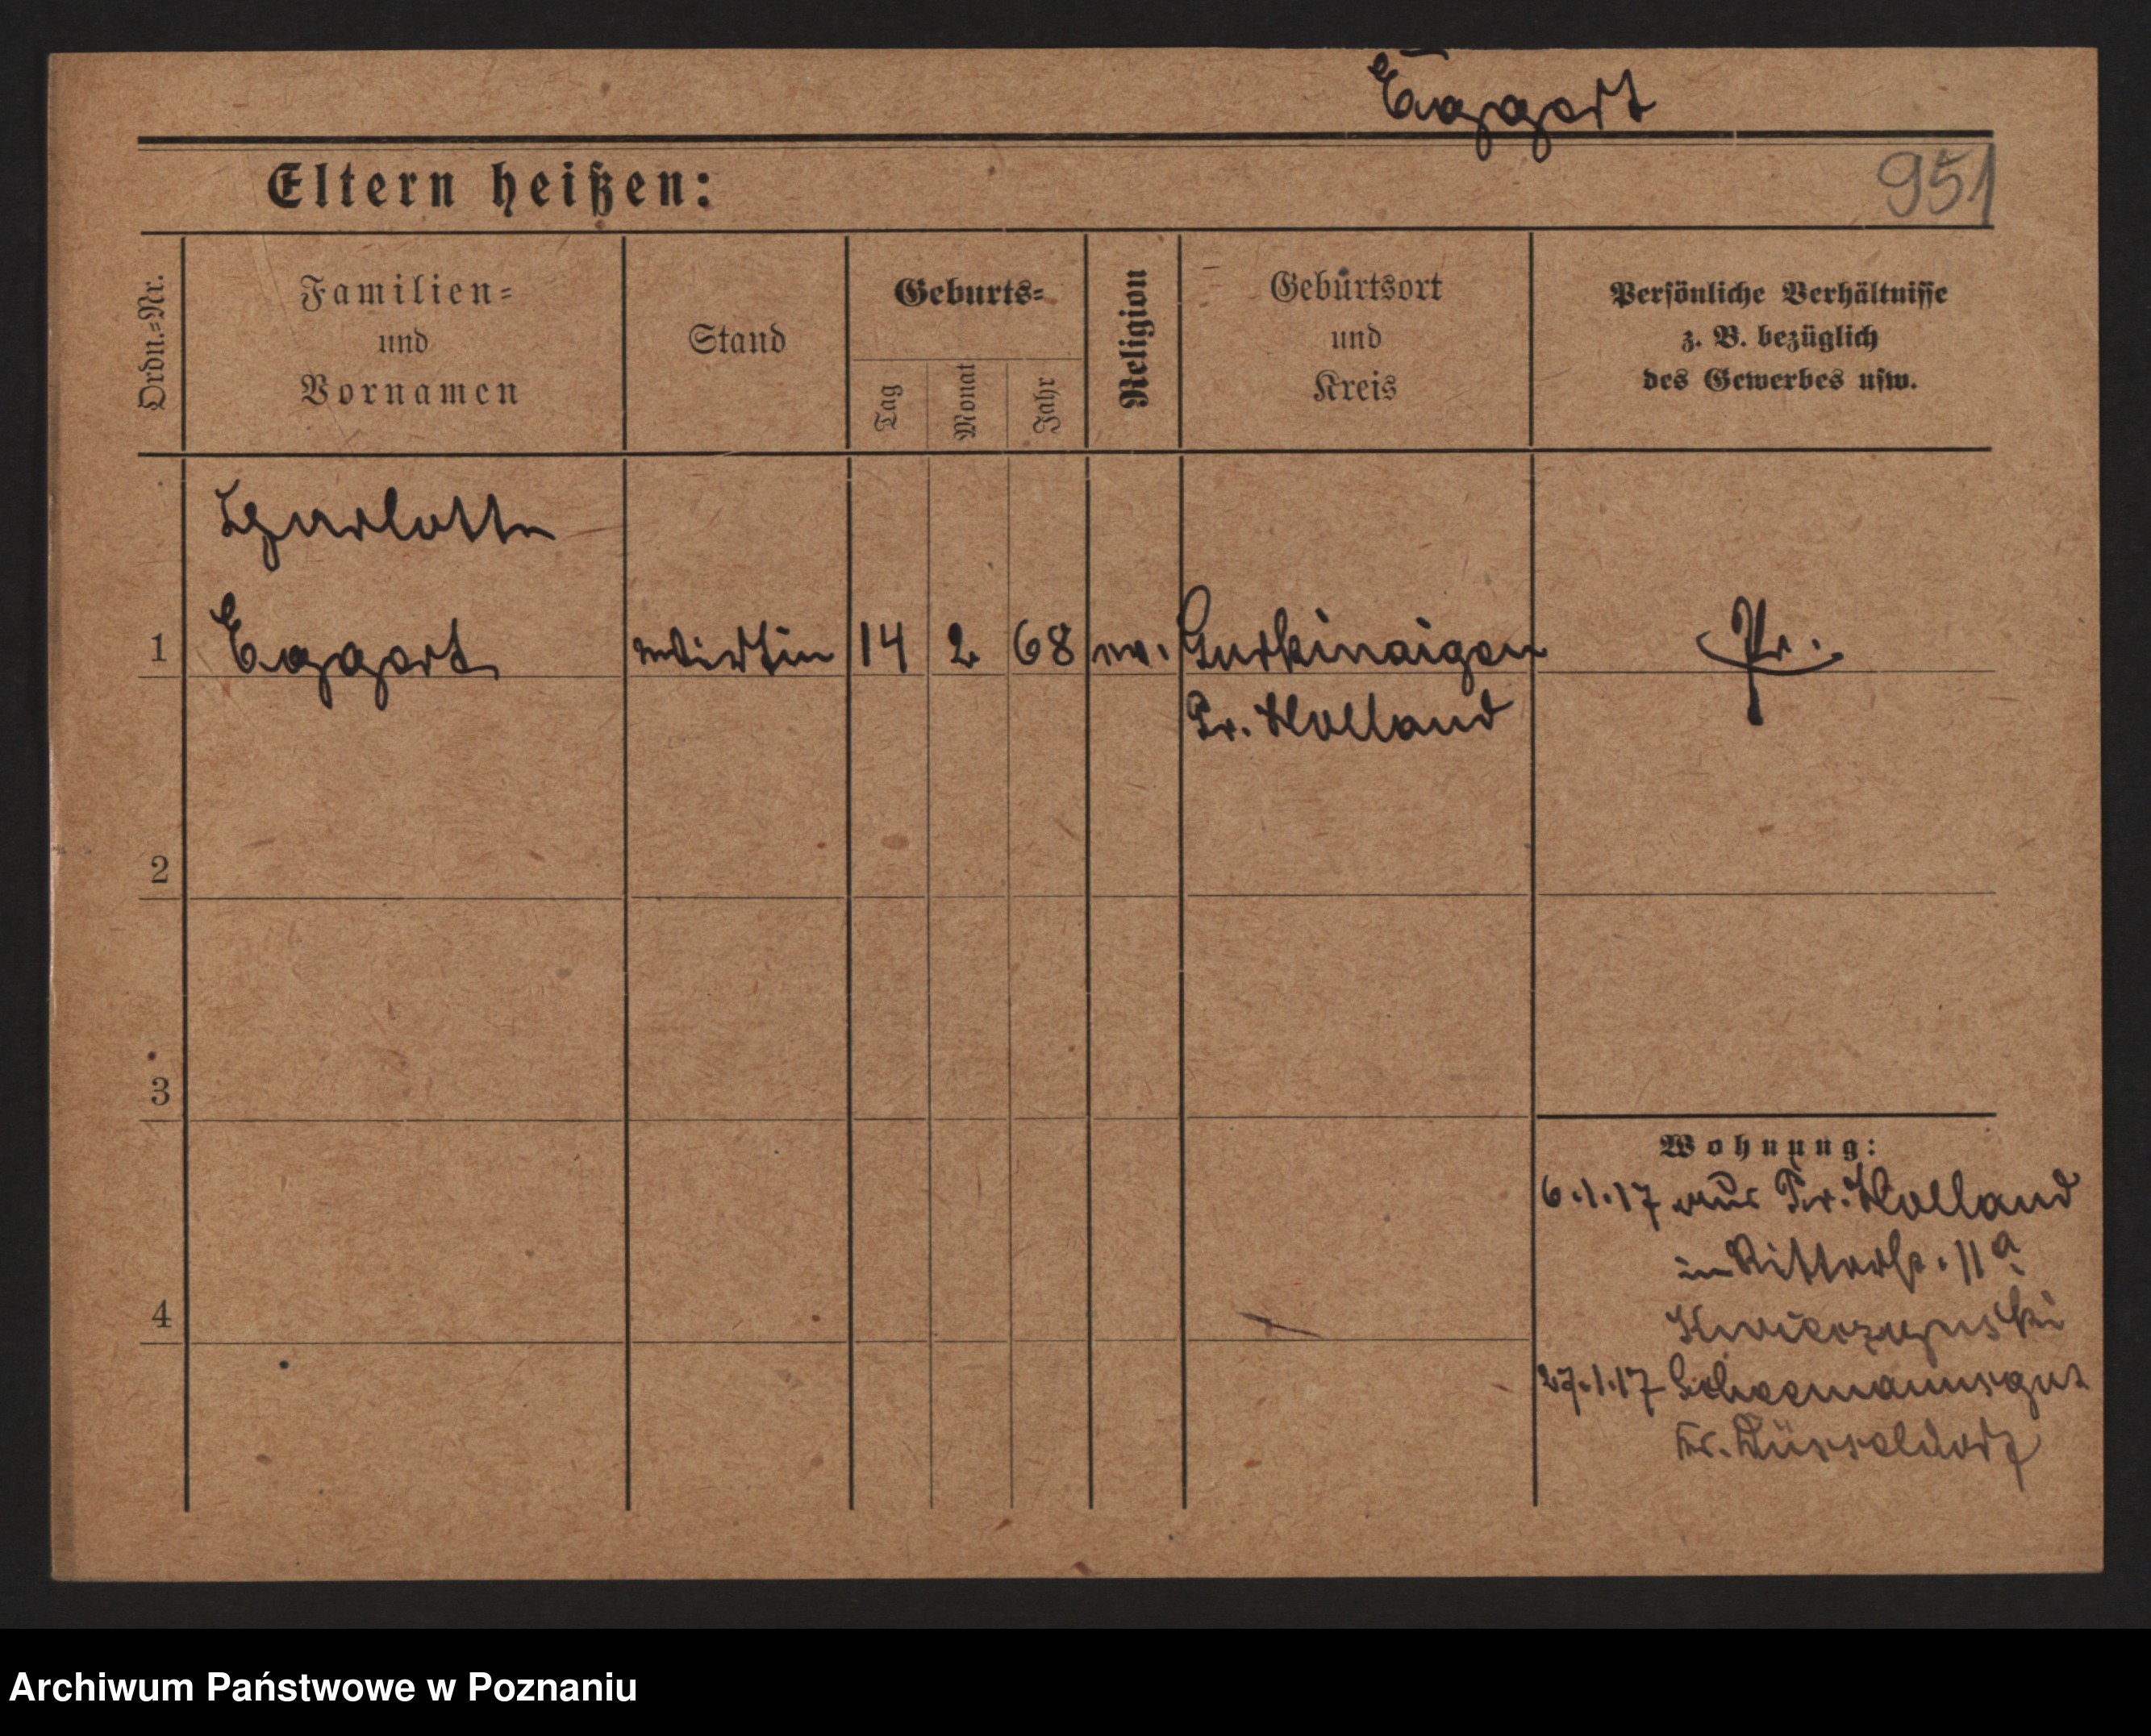 Eggert
951
Eltern heißen:
Ordn.=Nr.
Familien=
und
Vornamen
Stand
Geburts=
Tag
Monat
Jahr
Religion
Geburtsort
und
Kreis
Persönliche Verhältnisse
z. B. bezüglich
des Gewerbes usw.
Charlotte
1 Eggert Wirtin 14 2 68 ev. Pr.
Pr. Holland
2
3
4
Wohnung:
6.1.17 aus Pr. Holland
in Ritterstr. 11a
27.1.17
Kr. Düsseldorf
Archiwum Państwowe w Poznaniu